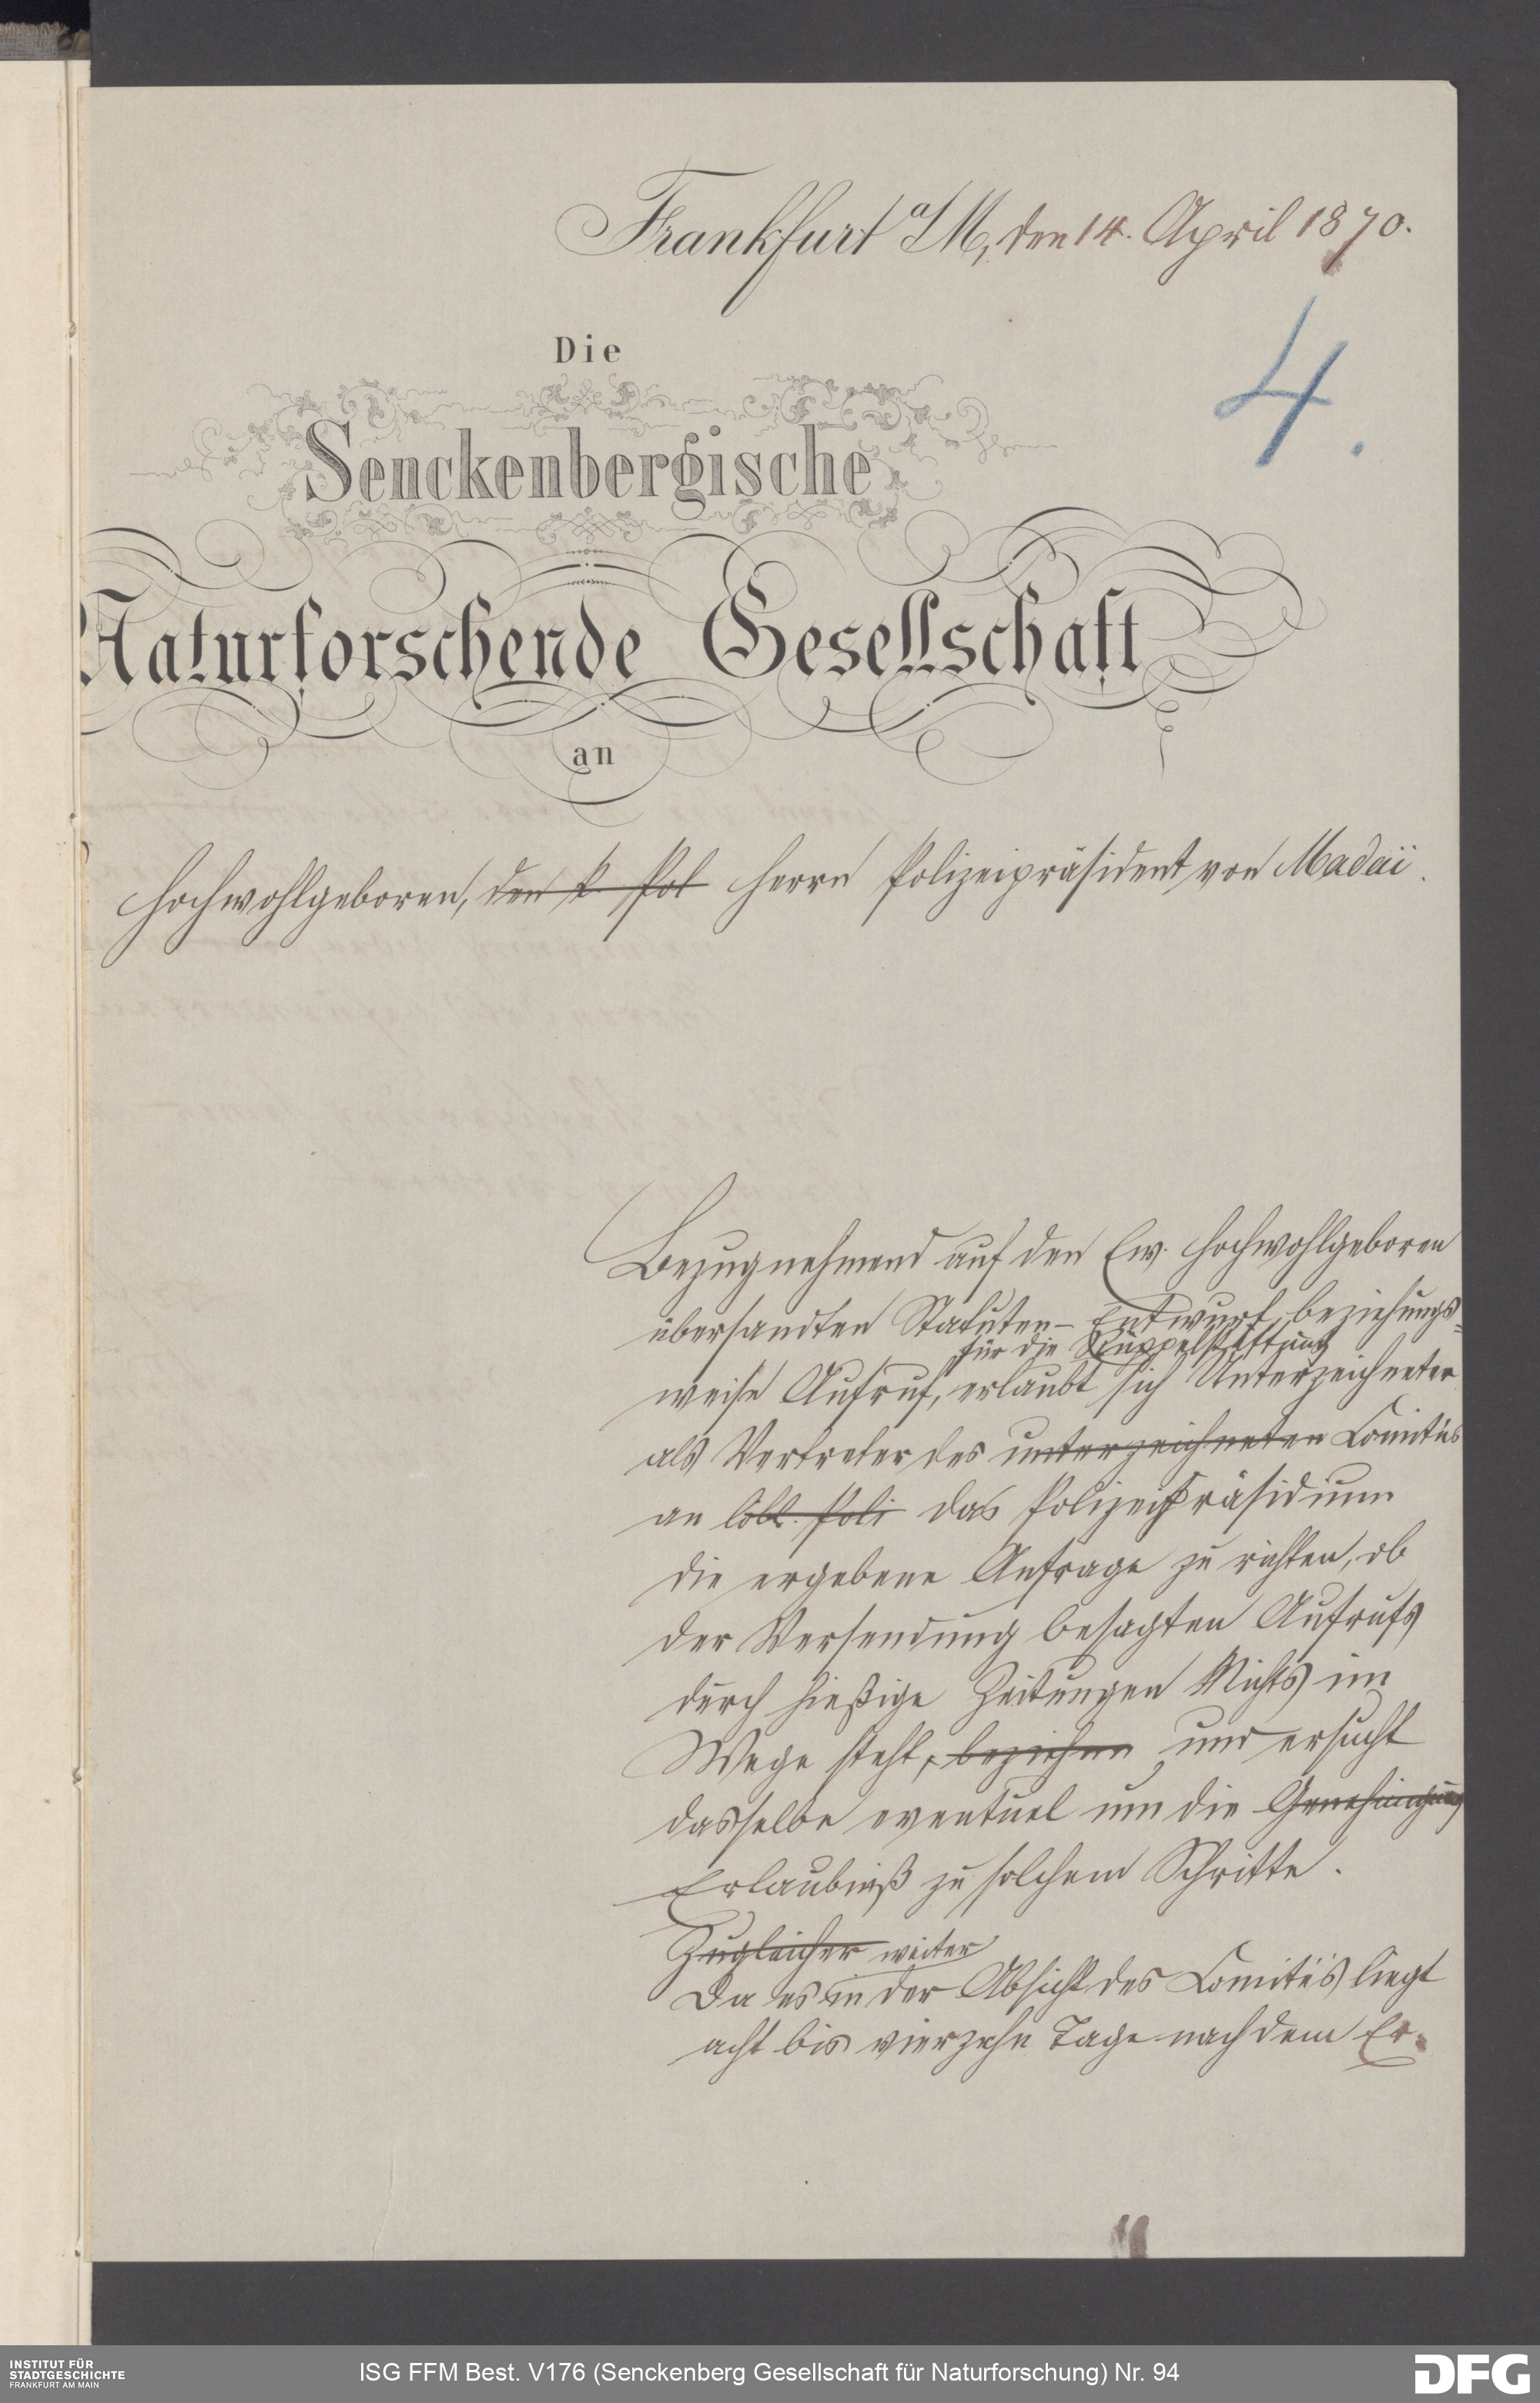 Frankfurt a/M, den 14. April 1870.
4.
Die
Senckenbergische
Naturforschende Gesellschaft
an
Hochwohlgeboren, den k. Pol Herrn Polizeipräsident von Madaï.
Bezugnehmend auf den Ew. Hochwohlgeboren
übersandten Statuten-Entwurf beziehungs=
für die Rüppelstiftung
weise Aufruf, erlaubt sich Unterzeichneter
als Vertreter des unterzeichneten Comités
an löbl. Poli das Polizeipräsidium
die ergebene Anfrage zu richten, ob
der Versendung besagten Aufrufs
durch hießige Zeitungen Nichts im
Wege steht, beziehen und ersucht
dasselbe eventuel um die Genehmigung
Erlaubniß zu solchem Schritte.
Zugleicher weiter
Da es in der Absicht des Comités liegt
acht bis vierzehn Tage nach dem Er-
INSTITUT FÜR
STADTGESCHICHTE
FRANKFURT AM MAIN
ISG FFM Best. V176 (Senckenberg Gesellschaft für Naturforschung) Nr. 94
DFG